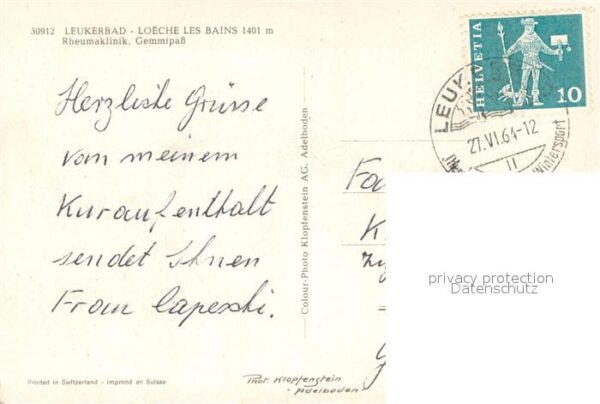 50912 LEUKERBAD - LOÈCHE LES BAINS 1401 m
Rheumaklinik, Gemmipaß
HELVETIA
10
LEUK
27.VI.64-12
Wintersport
Herzliche Grüsse
von meinem
Kuraufenthalt
sendet Ihnen
Frau
Colour-Photo Klopfenstein AG. Adelboden
privacy protection
Datenschutz
Printed in Switzerland - Imprimé en Suisse
Phot. Klopfenstein
- Adelboden -